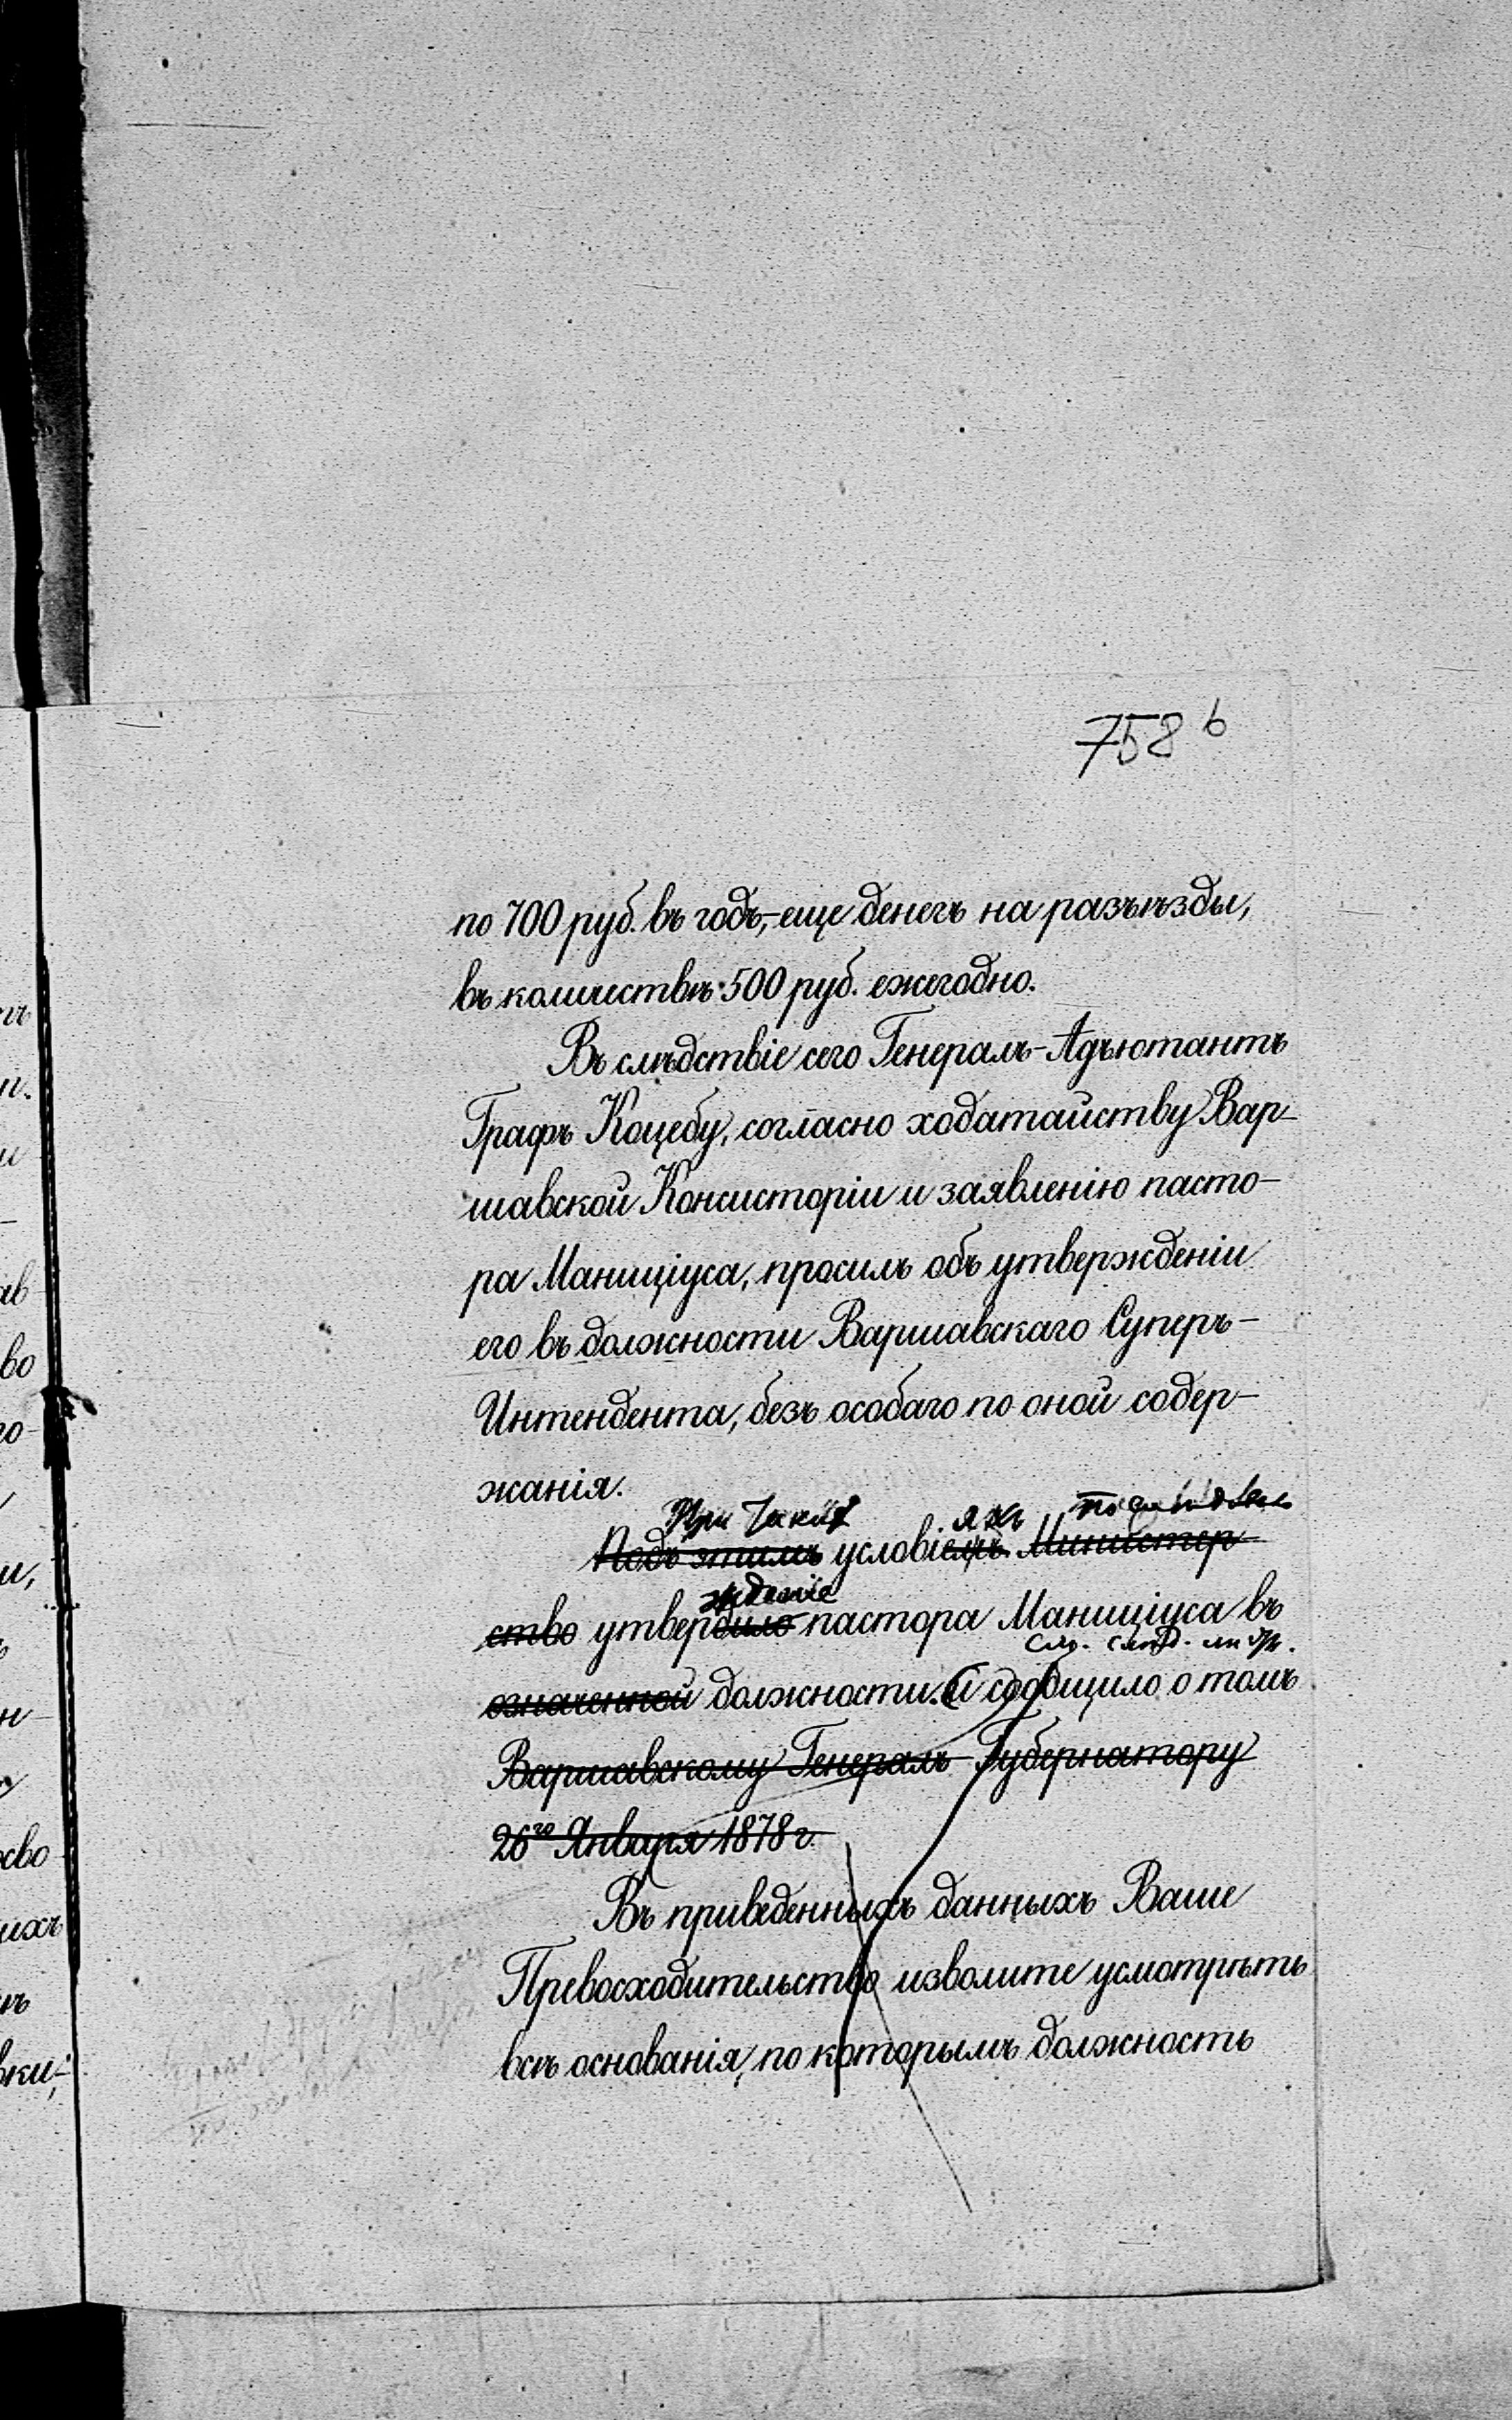 758 b
по 700 руб. въ годъ,-еще денегъ на разъѣзды,
въ количествѣ 500 руб. ежегодно.
Въ слѣдствіе сего Генералъ-Адъютантъ
Графъ Коцебу, согласно ходатайству Вар-
шавской Консисторіи и заявленію пасто-
ра Маниціуса, просилъ объ утвержденіи
его въ должности Варшавскаго Суперъ-
Интендента, безъ особаго по оной содер-
жанія.
При такихъ яхъ
Подъ этимъ условіемъ Министер-
жденіе
ство утвердило пастора Маниціуса въ
означенной должности. и сообщило о томъ
Варшавскому Генералъ-Губернатору
26го Января 1878 г.
Въ приведенныхъ данныхъ Ваше
Превосходительство изволите усмотрѣть
всѣ основанія, по которымъ должность